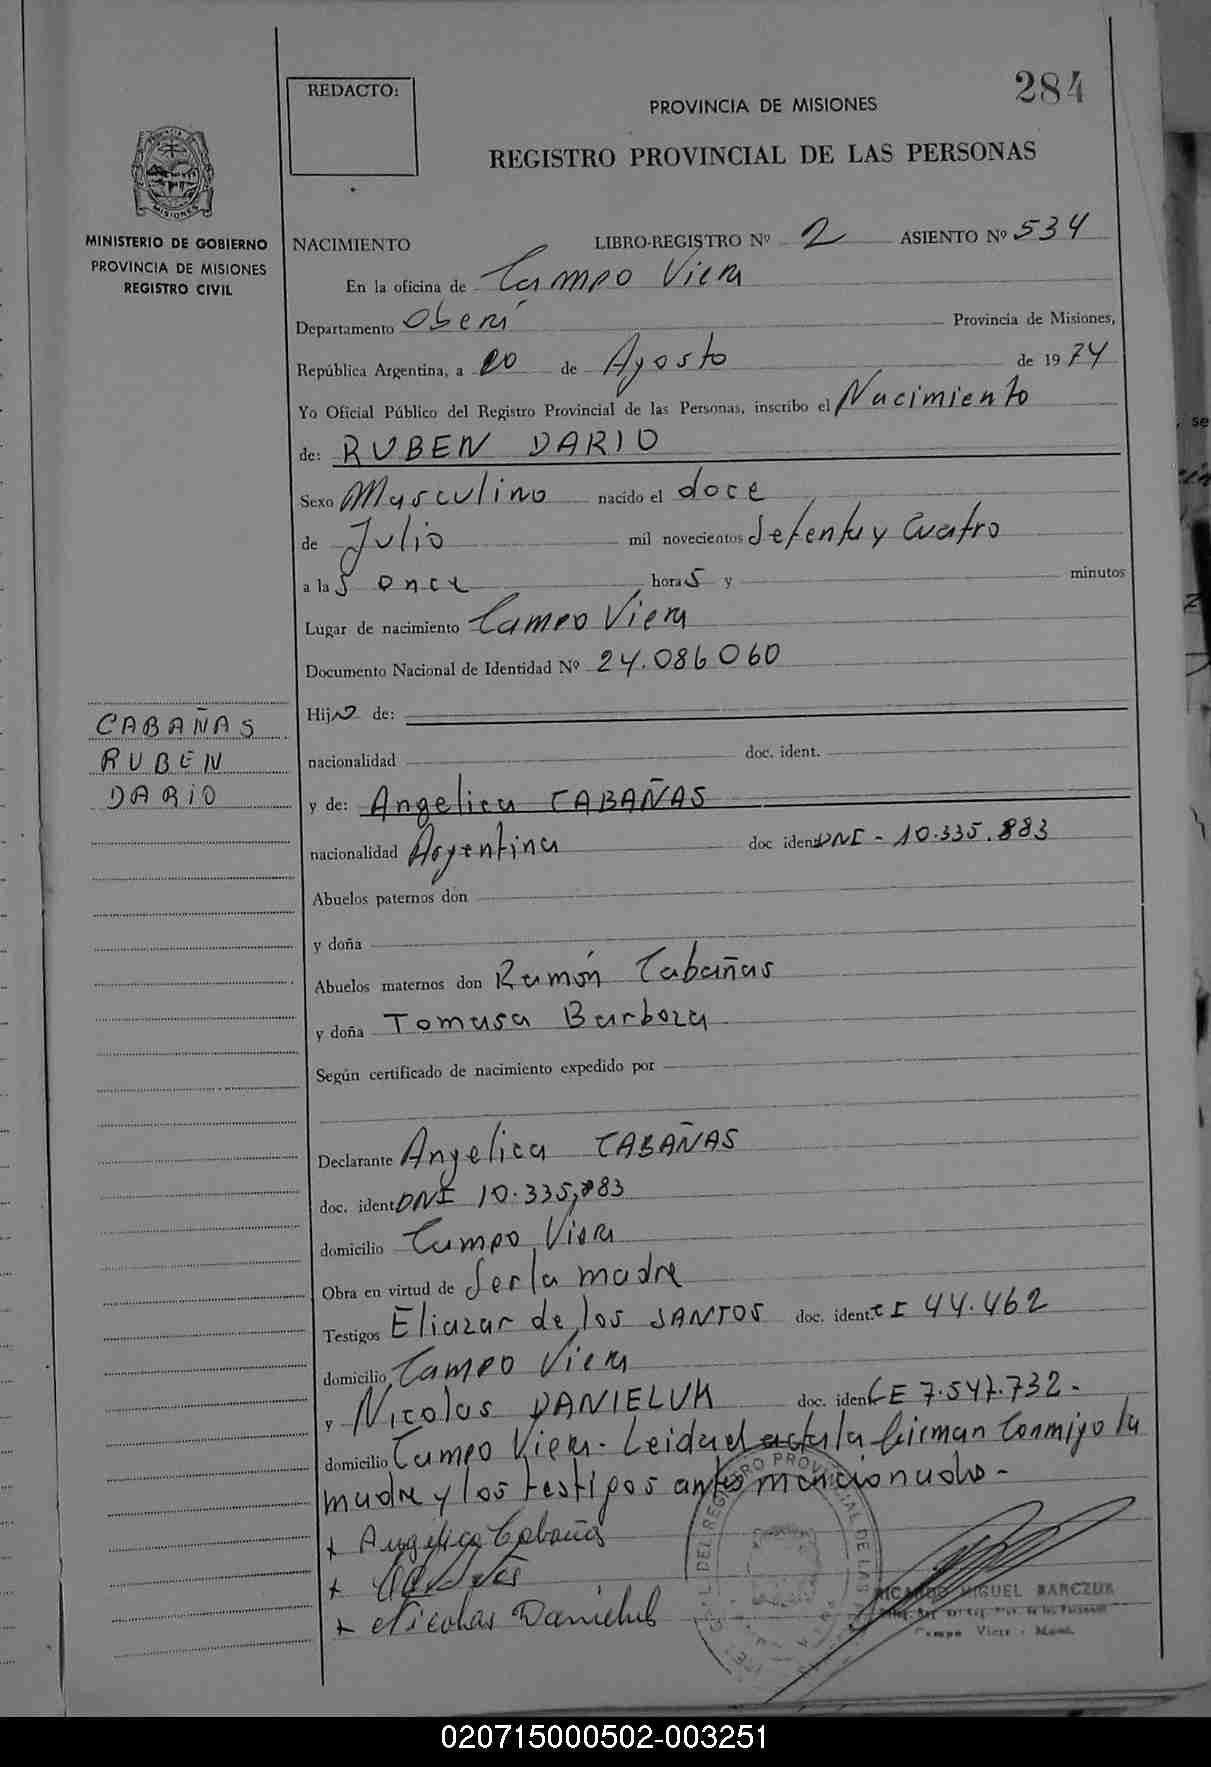 REDACTO:
284
PROVINCIA DE MISIONES
REGISTRO PROVINCIAL DE LAS PERSONAS
MISIONES
MINISTERIO DE GOBIERNO
PROVINCIA DE MISIONES
REGISTRO CIVIL
NACIMIENTO LIBRO-REGISTRO Nº 2 ASIENTO Nº 534
En la oficina de Campo Viera
Departamento Oberá Provincia de Misiones,
República Argentina, a 20 de Agosto de 1974
Yo Oficial Público del Registro Provincial de las Personas, inscribo el Nacimiento
de: RUBEN DARIO
Sexo Masculino nacido el doce
de Julio mil novecientos Setenta y Cuatro
a las once horas y minutos
Lugar de nacimiento Campo Viera
Documento Nacional de Identidad Nº 24.086060
Hijo de:
nacionalidad doc. ident.
y de: Angelica CABAÑAS
nacionalidad Argentina doc ident DNI - 10.335.883
Abuelos paternos don
y doña
Abuelos maternos don Ramón Cabañas
y doña Tomasa Barboza
Según certificado de nacimiento expedido por
Declarante Angelica CABAÑAS
doc. ident DNI 10.335,883
domicilio Campo Viera
Obra en virtud de Ser la madre
Testigos Eliazar de los SANTOS doc. ident. CI 44.462
domicilio Campo Viera
y Nicolas DANIELUK doc. ident LE 7.547.732.-
domicilio Campo Viera.- Leida el acta la firman Conmigo la
madre y los testigos antes mencionados -
+ Angelica Cabañas
+
+ Nicolas Danieluk
CABAÑAS
RUBEN
DARIO
DEL REGISTRO PROVINCIAL DE LAS
RICARDO MIGUEL BARCZUK
Campo Viera - Mnes.
020715000502-003251